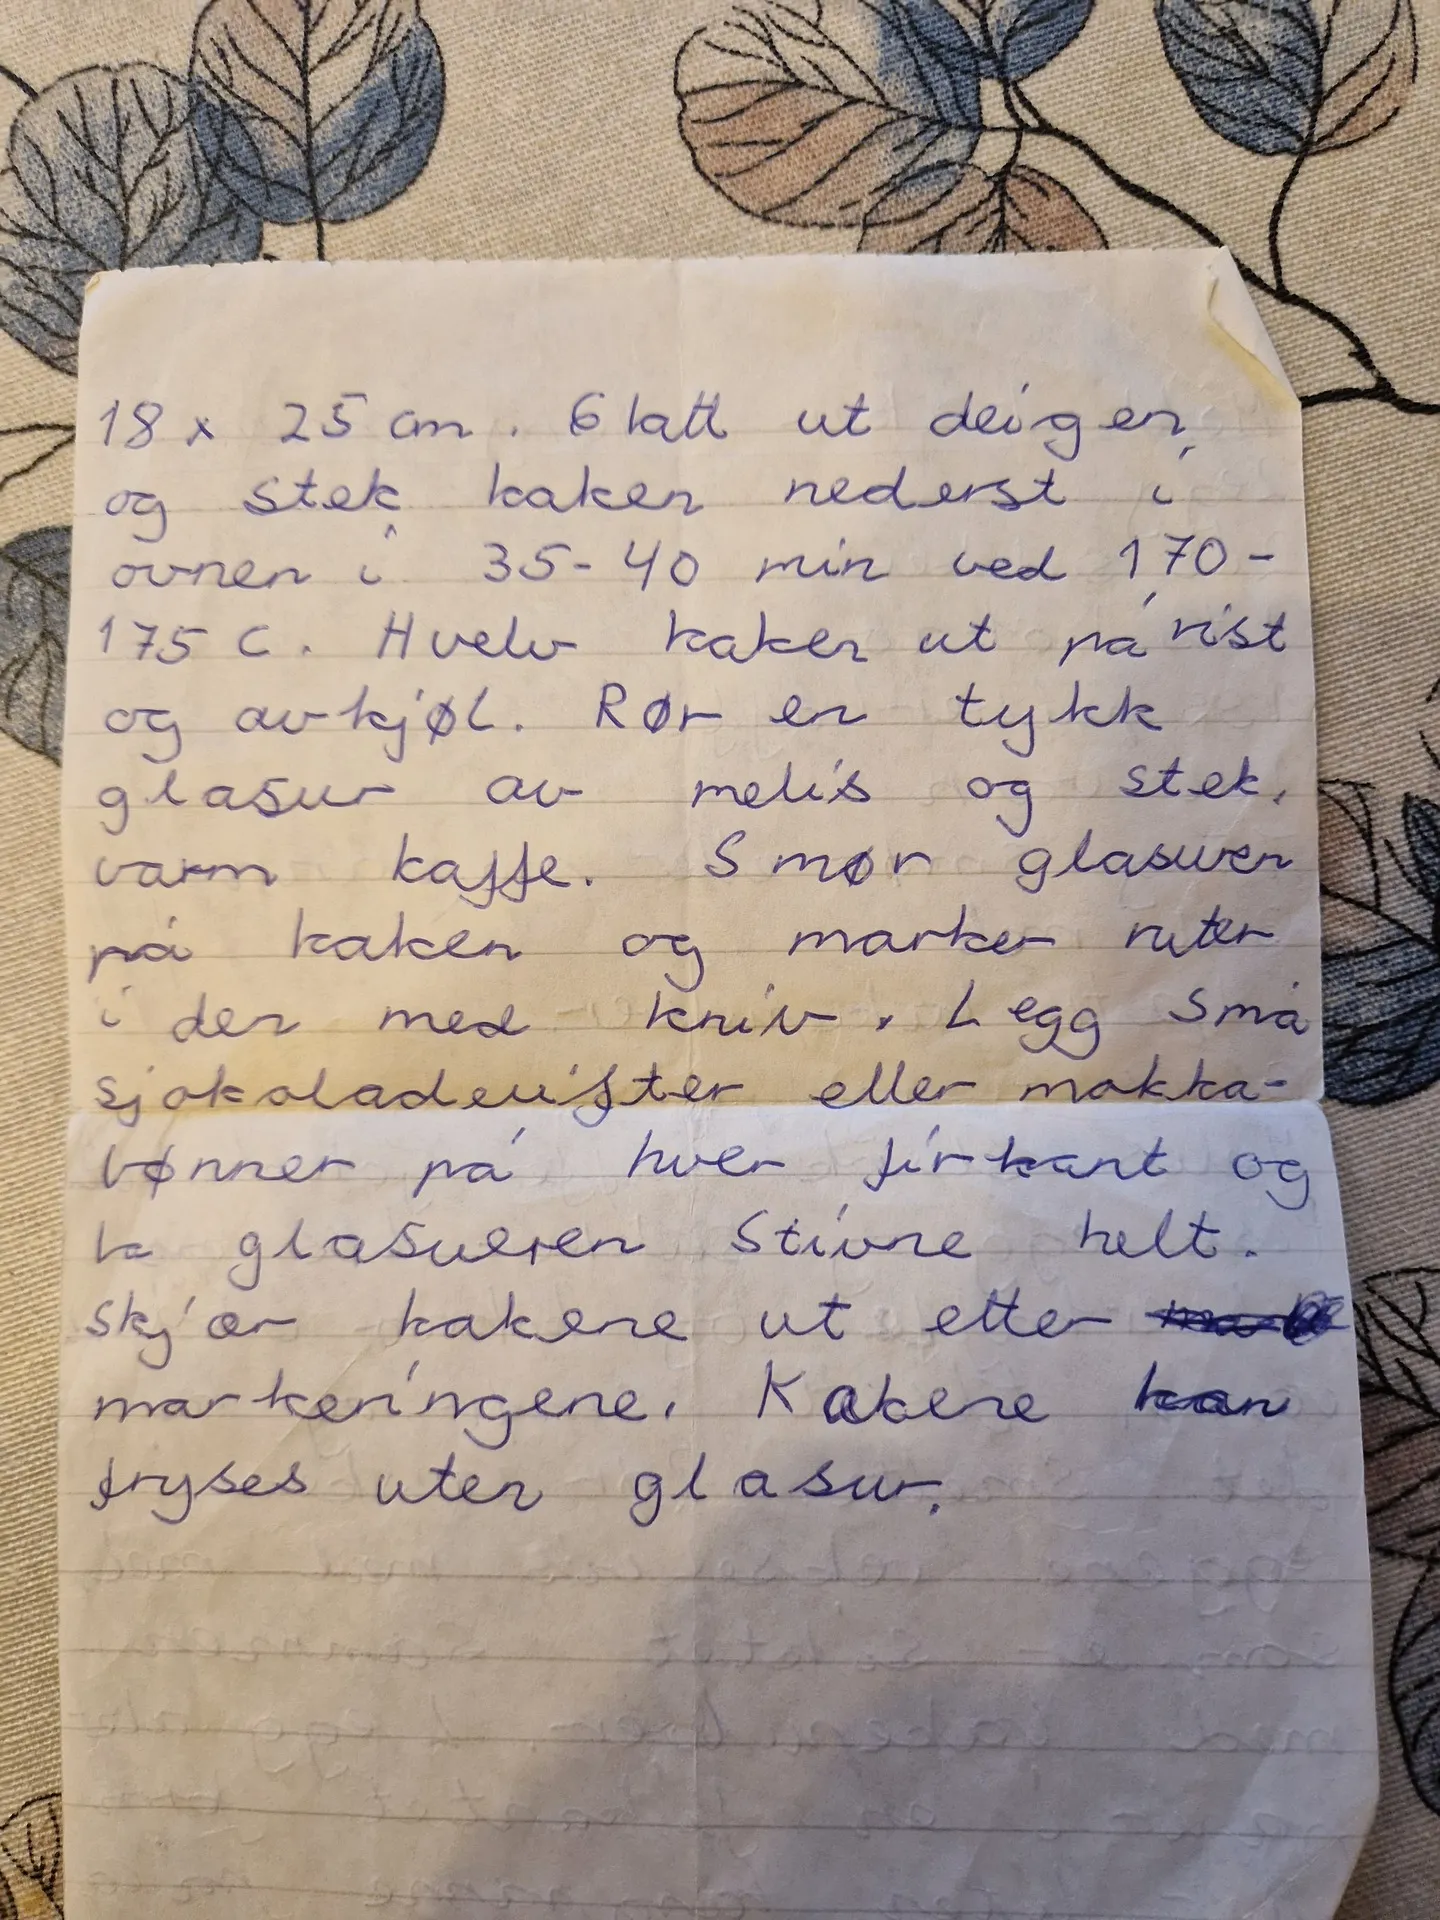 18 x 25 cm. Glatt ut deigen
og stek kaken nederst i
ovnen i 35-40 min ved 170-
175 C. Hvelv kaken ut på rist
og avkjøl. Rør en tykk
glasur av melis og sterk,
varm kaffe. Smør glasuren
på kaken og marker ruter
i den med kniv. Legg små
sjokoladevifter eller mokka-
bønner på hver firkant og
la glasueren stivne helt.
Skjær kakene ut etter
markeringene. Kakene kan
fryses uten glasur.